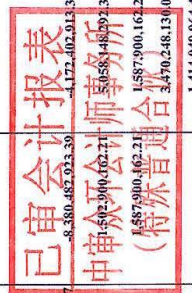 已审会计报表
中审众环会计师事务所
(特殊普通合伙)
-8,380,487,923.39
1,502,900,162.21
1,587,900,162.21
5,058,148,292.3
1,587,900,162.2
3,470,248,130.0